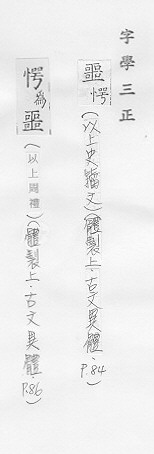 字學三正
噩愕(以上史籀文)(體製上·古文異體·P.84)
愕為噩(以上周禮)(體製上·古文異體·P.86)